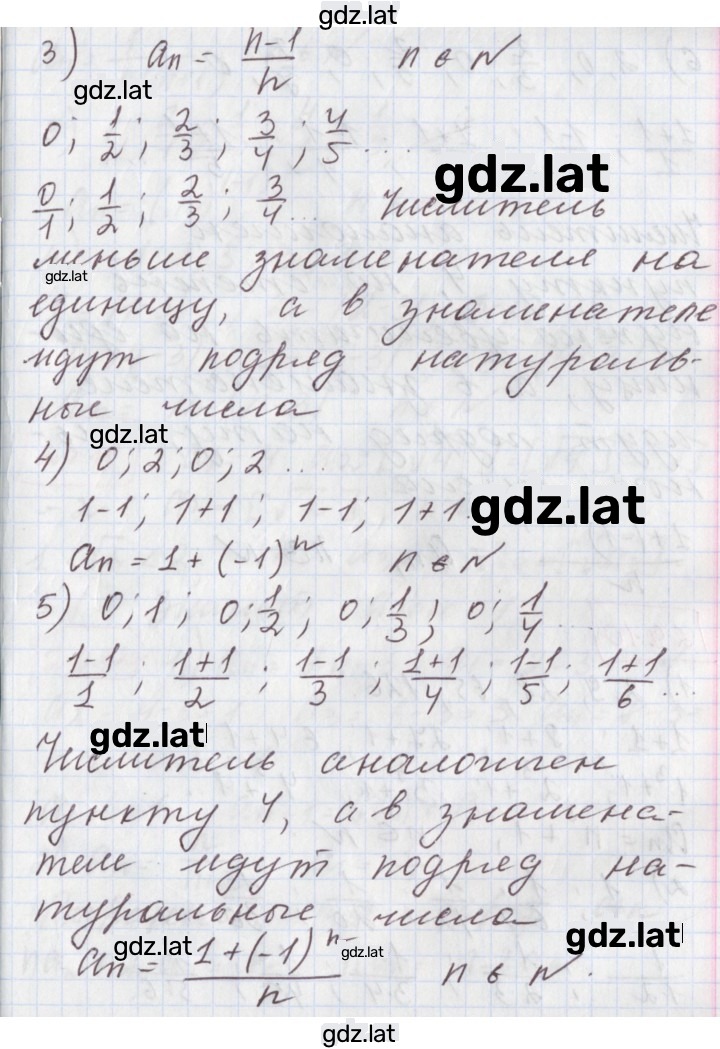 gdz.lat
3) an = n-1/n n ∈ N
gdz.lat
0; 1/2; 2/3; 3/4; 4/5 ...
gdz.lat
0/1; 1/2; 2/3; 3/4... Числитель
меньше знаменателя на
gdz.lat
единицу, а в знаменателе
идут подряд натураль-
ные числа
gdz.lat
4) 0; 2; 0; 2 ....
1-1; 1+1; 1-1; 1+1
gdz.lat
an = 1 + (-1)^n n ∈ N
5) 0; 1; 0; 1/2; 0; 1/3; 0; 1/4 ...
1-1/1; 1+1/2; 1-1/3; 1+1/4; 1-1/5; 1+1/6 ...
gdz.lat
Числитель аналогичен
пункту 4, а в знамена-
теле идут подряд на-
туральные числа
gdz.lat
gdz.lat
gdz.lat
an = 1+(-1)^n/n n ∈ N.
gdz.lat